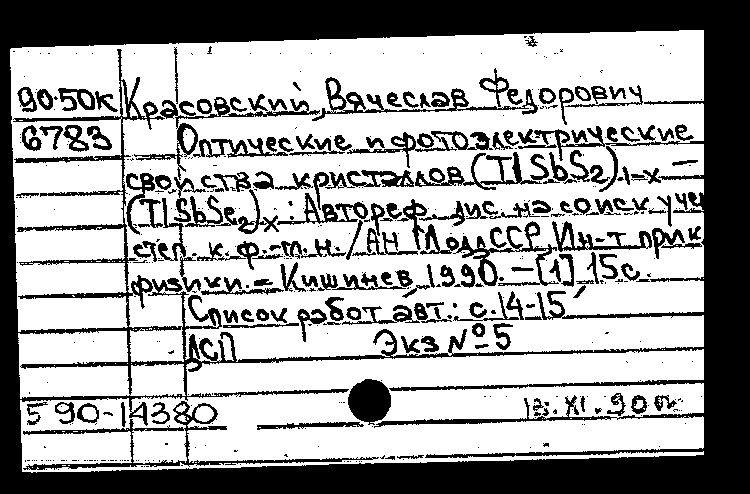 90-50к Красовский, Вячеслав Федорович
6783 Оптические и фотоэлектрические
свойства кристаллов (TlSbS2)1-x —
(TlSbSe2)x : Автореф. дис. на соиск учен
степ. к. ф.-м. н. / АН МолдССР, Ин-т прик.
физики. = Кишинев, 1990. — [1] 15 с.
Список работ авт.: с. 14-15
ДСП Экз № 5
5 90-14380 .XI.90